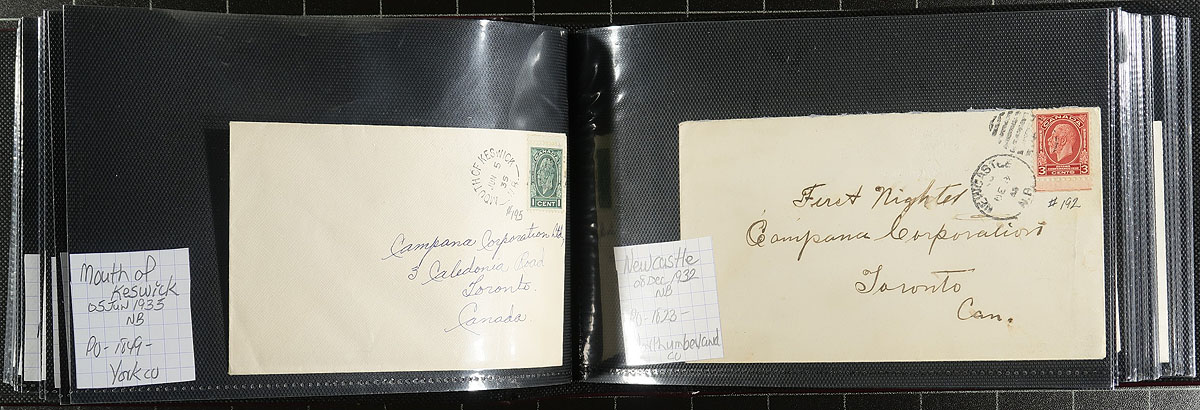 Mouth of
Keswick
05 Jun 1935
NB
PO - 1849 -
York co
MOUTH OF KESWICK
JUN 5
35
N.B.
CANADA
1 CENT 1
#195
Campana Corporation Ltd,
3 Caledonia Road
Toronto.
Canada.
Newcastle
08 Dec 1932
NB
PO - 1823 -
Northumberland
co
NEWCASTLE
DE
N.B.
CANADA
3 CENTS 3
#192
First Nighter
Campana Corporation
Toronto
Can.